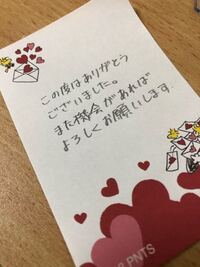 この度はありがとう
ございました。
また機会があれば
よろしくお願いします.
PNTS